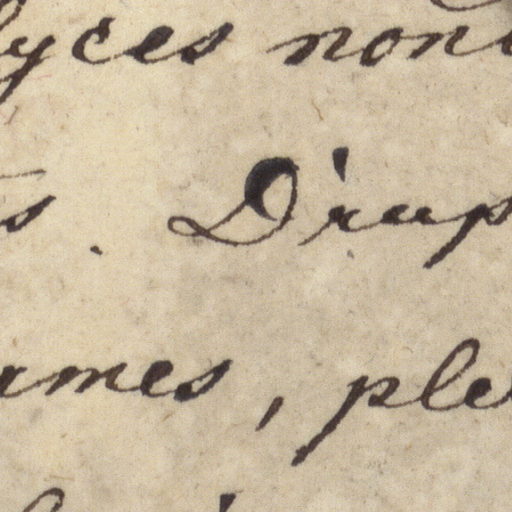 lyces non
s. D'rup
ames, ple